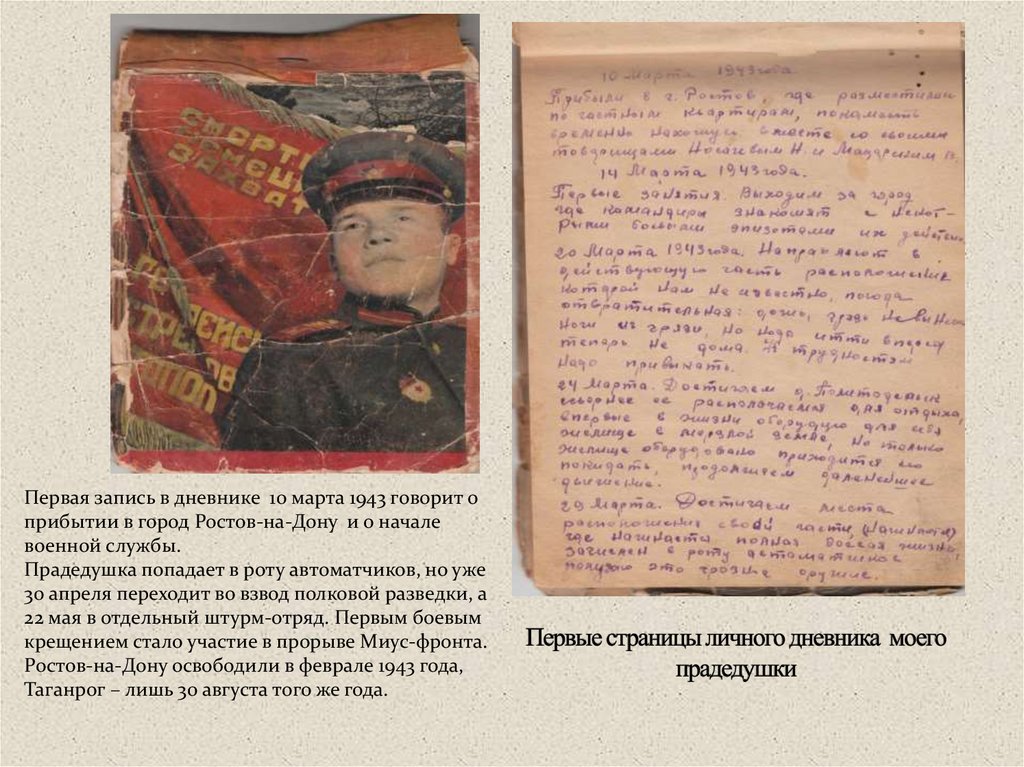 СМЕРТЬ
НЕМЕЦК
ЗАХВАТ
10 Марта 1943 года.
Прибыли в г. Ростов, где разместились
по частным квартирам, покамасть
временно нахожусь вместе со своими
товарищами Носачевым Н. и Мацарским В.
14 Марта 1943 года.
Первые занятия. Выходим за город
где командиры знакомят с некот-
рыми боевыми эпизотами их действи
20 Марта 1943 года. Направляют в
действующую часть расположения
которой нам не известно, погода
отвратительная: дождь, грязь не вынести
ноги из грязи, но надо итти вперед
теперь не дома. К трудностям
надо привыкать.
24 Марта. Достигаем д.
севернее ее располагаемся для отдыха,
впервые в жизни оборудую для себя
жилище в мерзлой земле, но только
жилище оборудовано приходится его
покидать, продолжаем дальнейшее
движение.
29 Марта. Достигаем места
расположения своей части
где начинается полная боевая жизнь
зачислен в роту автоматчиков
получаю это грозное оружие.
Первая запись в дневнике 10 марта 1943 говорит о
прибытии в город Ростов-на-Дону и о начале
военной службы.
Прадедушка попадает в роту автоматчиков, но уже
30 апреля переходит во взвод полковой разведки, а
22 мая в отдельный штурм-отряд. Первым боевым
крещением стало участие в прорыве Миус-фронта.
Ростов-на-Дону освободили в феврале 1943 года,
Таганрог – лишь 30 августа того же года.
Первые страницы личного дневника моего
прадедушки